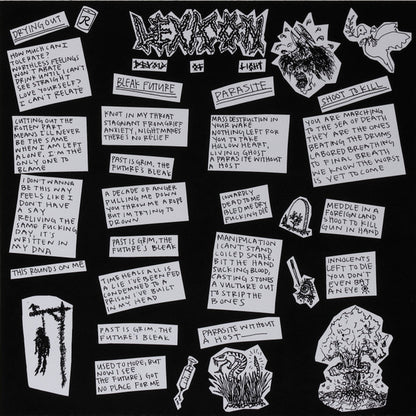 DRYING OUT
R
HOW MUCH CAN I
TOLERATE?
WORTHLESS FEELINGS
WON'T ABATE
DRINK UNTIL I CAN'T
SEE STRAIGHT
LOVE YOURSELF?
I CAN'T RELATE
CUTTING OUT THE
ROTTEN PART
MEANS I'LL NEVER
BE THE SAME
WHEN I AM LEFT
ALONE, I'M THE
ONLY ONE TO
BLAME
I DON'T WANNA
BE THIS WAY
FEELS LIKE I
DON'T HAVE
A SAY
RELIVING THE
SAME FUCKING
DAY, IT'S
WRITTEN IN
MY DNA
THIS ROUND'S ON ME
BLEAK FUTURE
KNOT IN MY THROAT
STAGNANT FROM GRIEF
ANXIETY, NIGHTMARES
THERE'S NO RELIEF
PAST IS GRIM, THE
FUTURE'S BLEAK
A DECADE OF ANGER
PULLING ME DOWN
YOU THROW ME A ROPE
BUT I'M TRYING TO
DROWN
PAST IS GRIM, THE
FUTURE'S BLEAK
TIME HEALS ALL IS
A LIE I'VE BEEN FED
CONDEMNED TO A
PRISON I'VE BUILT
IN MY HEAD
PAST IS GRIM, THE
FUTURE'S BLEAK
USED TO HOPE, BUT
NOW I SEE
THE FUTURE'S GOT
NO PLACE FOR ME
DEVOID OF LIGHT
PARASITE
MASS DESTRUCTION IN
YOUR WAKE
NOTHING LEFT FOR
YOU TO TAKE
HOLLOW HEART,
LIVING GHOST
A PARASITE WITHOUT
A HOST
COWARDLY
DEAD TO ME
BLED ME DRY
FUCKING DIE
MANIPULATION
I CAN'T STAND
COILED SNAKE,
BIT THE HAND
SUCKING BLOOD,
CASTING STONES
A VULTURE OUT
TO STRIP THE
BONES
PARASITE WITHOUT
A HOST
SHOOT TO KILL
YOU ARE MARCHING
TO THE SEA OF DEATH
THEY ARE THE ONES
BEATING THE DRUMS
LABORED BREATHING
TO FINAL BREATH
WE KNOW THE WORST
IS YET TO COME
MEDDLE IN A
FOREIGN LAND
SHOOT TO KILL
GUN IN HAND
INNOCENTS
LEFT TO DIE
YOU DON'T
EVEN BAT
AN EYE